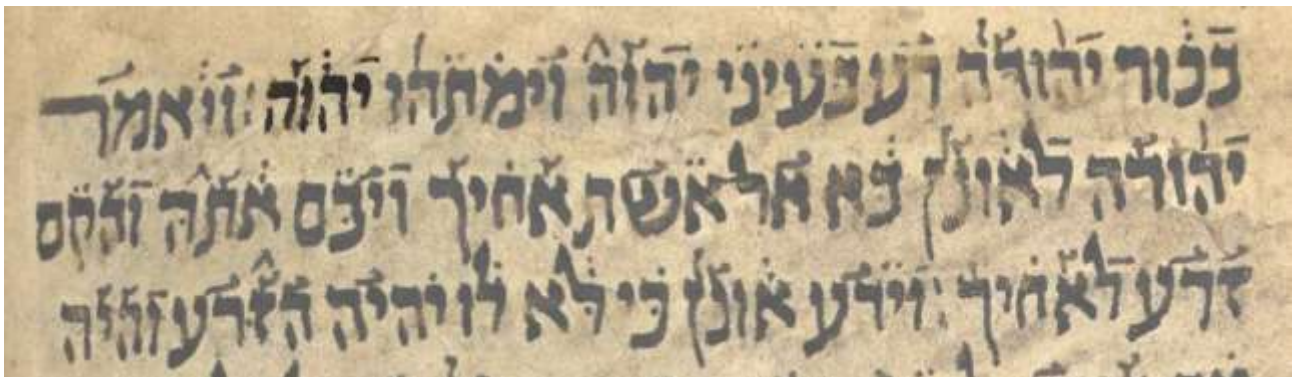 בכור יהודה רע בעיני יהוה וימתהו יהוה: ויאמר
יהודה לאונן בא אל אשת אחיך ויבם אתה והקם
זרע לאחיך: וידע אונן כי לא לו יהיה הזרע והיה